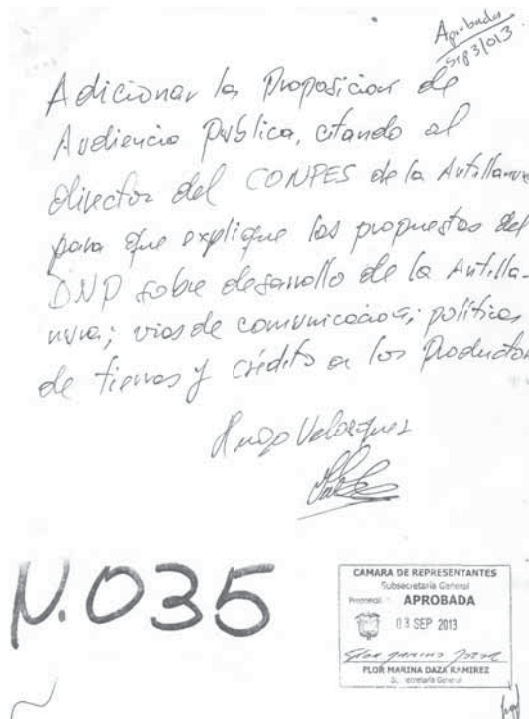 Aprobada
Sep 3/013
Adicionar la Proposicion de
Audiencia Publica, citando al
director del CONPES de la Antillanura
para que explique las propuestas del
DNP sobre desarrollo de la Antilla-
nura; vias de comunicacion; politicas
de tierras y crédito a los Productores
Hugo Velasquez
N.035
CAMARA DE REPRESENTANTES
Subsecretaría General
APROBADA
03 SEP 2013
FLOR MARINA DAZA RAMIREZ
Subsecretaria General